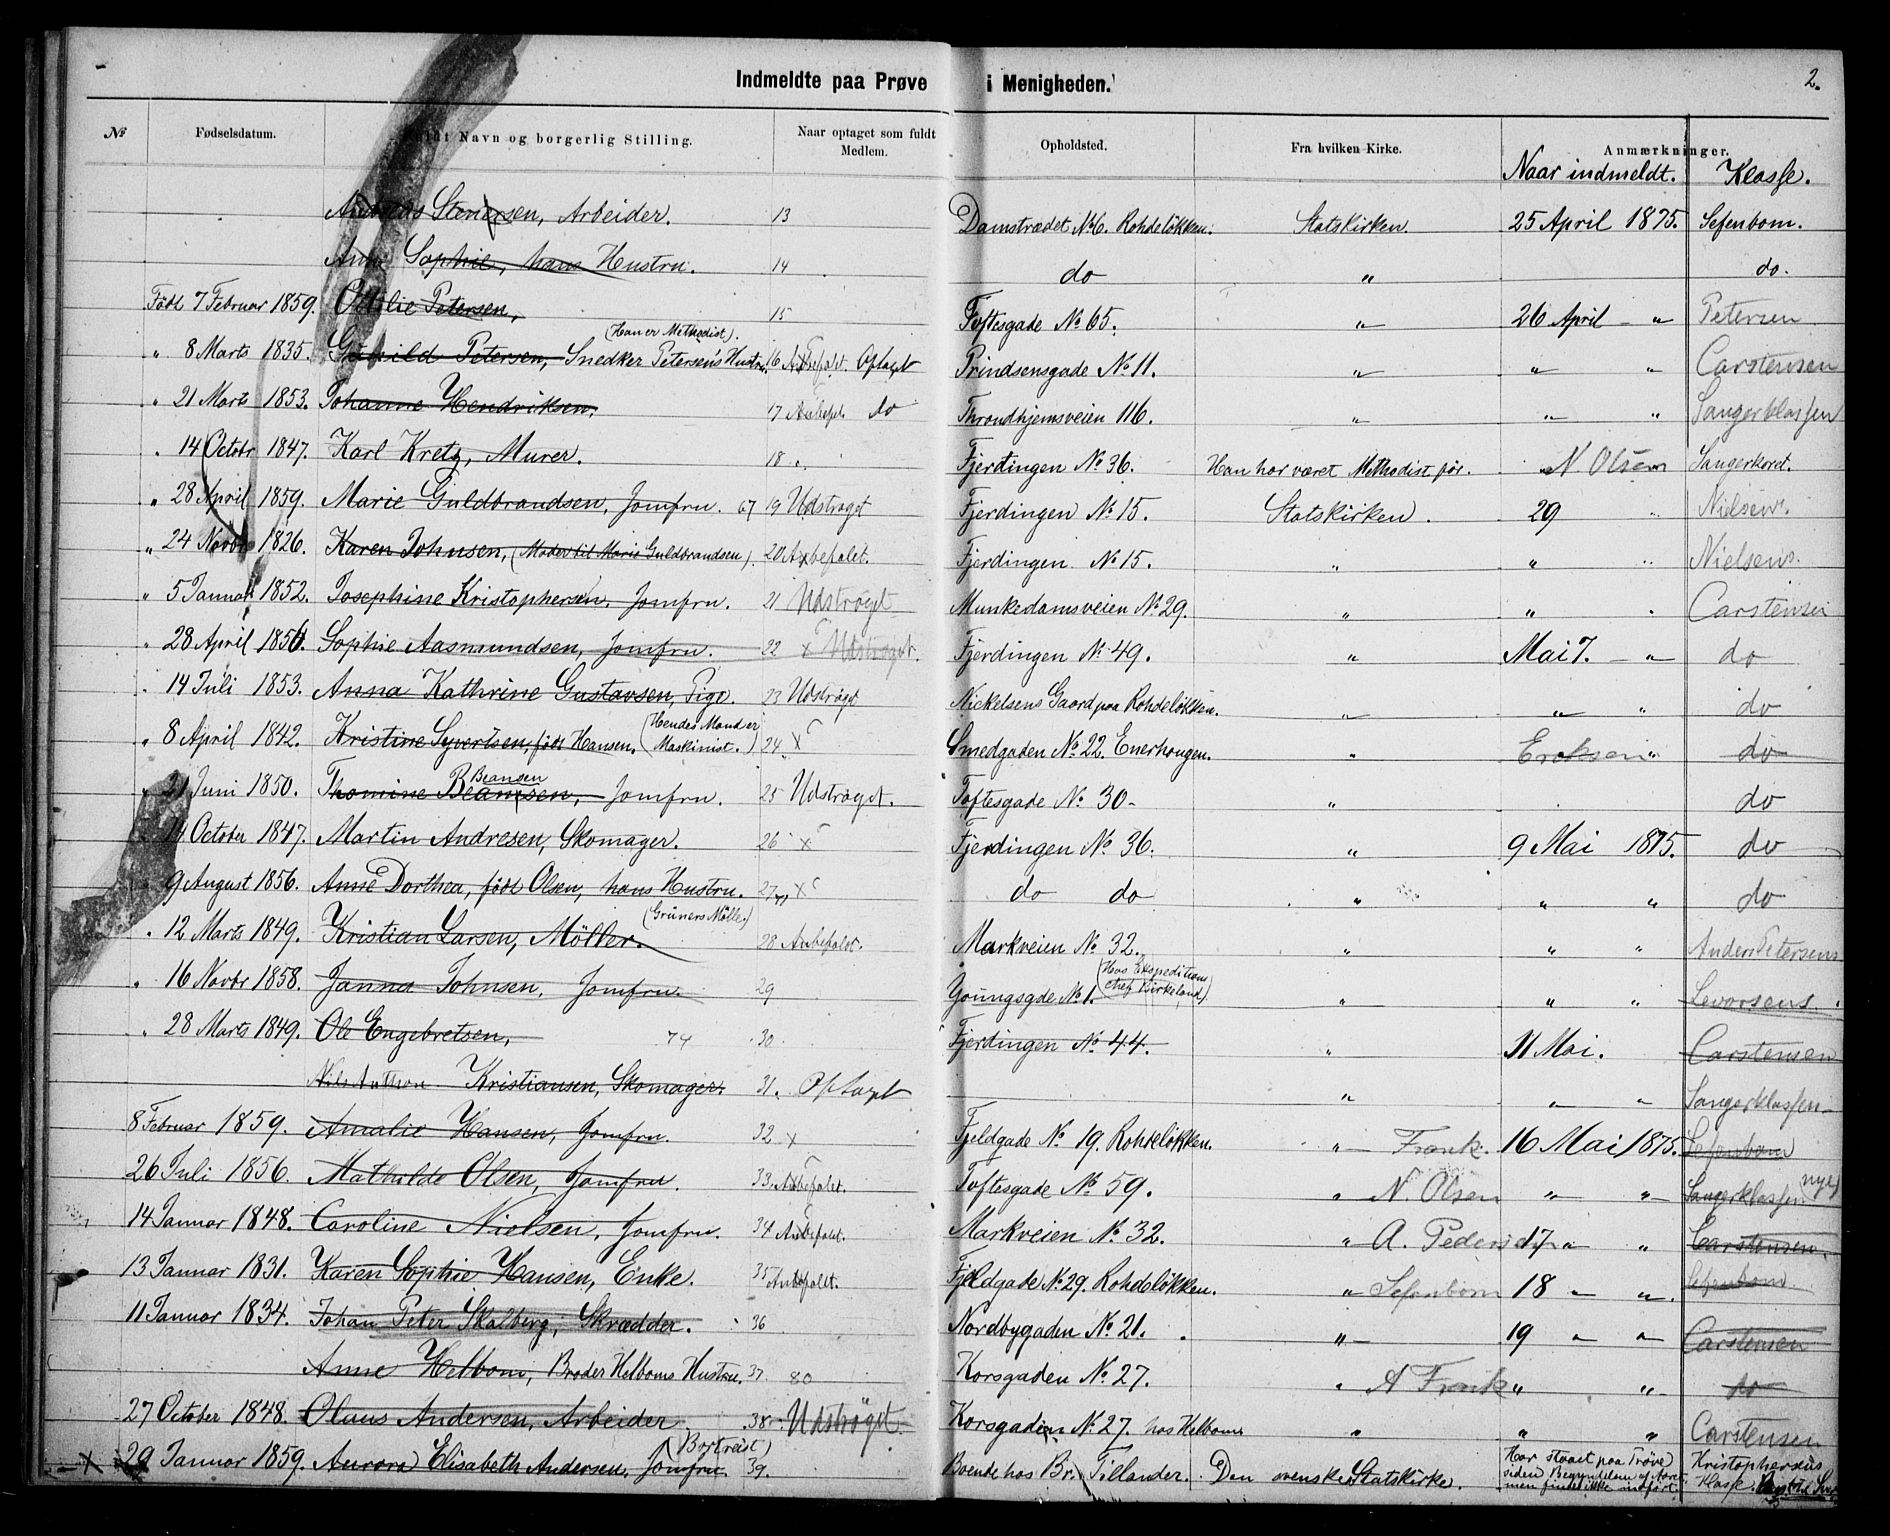 Indmeldte paa Prøve i Menigheden. 2.
№ Fødselsdatum. Fuldt Navn og borgerlig Stilling. Naar optaget som fuldt Medlem. Opholdsted. Fra hvilken Kirke. Anmærkninger.
Naar indmeldt. Klasse.
Andreas Stenersen, Arbeider. 13 Damstrædet № 6. Rohdeløkken. Statskirken. 25 April 1875. Sefenbom.
Anne Sophie, hans Hustru. 14 do " do.
Født 7 Februar 1859. Otilie Petersen, 15 Toftesgade № 65. " 26 April " Petersen
(Han er Methodist).
" 8 Marts 1835. Gunild Petersen, Snedker Petersens Hustru. 16 Anbefalet. Optaget Prindsensgade № 11. " " " Carstensen
" 21 Marts 1853. Johanne Hendriksen. 17 Anbefal. do Throndhjemsveien 116. " " " Sangerklassen
" 14 Octobr 1847. Karl Kretz, Murer. 18 " Fjerdingen № 36. Han har været Methodist før. " N Olsen Sangerkoret.
" 28 April 1859. Marie Guldbrandsen, Jomfru. 67 19 Udstrøget Fjerdingen № 15. Statskirken. 29 " Nielsen.
" 24 Novbr 1826. Karen Johnsen, (Moder til Marie Guldbrandsen). 20 Anbefalet. Fjerdingen № 15. " " " Nielsens.
" 5 Januar 1852. Josephine Kristophersen, Jomfru. 21 Udstrøget Munkedamsveien № 29. " " " Carstensen
" 28 April 1856. Sophie Aasmundsen, Jomfru. 22 x Udstrøget. Fjerdingen № 49. " Mai 7. " do
" 14 Juli 1853. Anna Kathrine Gustavsen, Pige. 23 Udstrøget Nickelsens Gaard paa Rohdeløkken. " " " do
" 8 April 1842. Kristine Syvertsen, født Hansen. (Hendes Mand er Maskinist.) 24 x Smedgaden № 22. Enerhougen. " Eriksen " do
Beansen
" 21 Juni 1850. Thomine Beansen, Jomfru. 25 Udstrøget. Toftesgade № 30 " do
14 October 1847. Martin Andresen, Skomager. 26 x Fjerdingen № 36. " 9 Mai 1875. do
" 9 August 1856. Anne Dorthea, født Olsen, hans Hustru. 27 x do do " " " do
(Grüners Mølle.)
" 12 Marts 1849. Kristian Larsen, Møller. 28 Anbefalet. Markveien № 32. " " " Anders Petersens
" 16 Novbr 1858. Janna Johnsen, Jomfru. 29 Youngsgde № 1. (Hos Expeditions chef Birkeland). " " " Levorsens.
" 28 Marts 1849. Ole Engebretsen, 74 30 Fjerdingen № 44. " 11 Mai. Carstensen
Nils Anthon Kristiansen, Skomager. 31. Optaget " " " Sangerklassen
8 Februar 1859. Amalie Hansen, Jomfru. 32 x Fjeldgade № 19. Rohdeløkken. " Frank. 16 Mai 1875. Sefenbom
26 Juli 1856. Mathilde Olsen, Jomfru. 33. Anbefalet. Toftesgade № 59. " N. Olsen " " Sangerklassen nye
14 Januar 1848. Caroline Nielsen, Jomfru. 34 Anbefalet. Markveien № 32. " A. Pedersen 17 " " Carstensen.
13 Januar 1831. Karen Sophie Hansen, Enke. 35 Anbefalet. Fjeldgade № 29. Rohdeløkken. " Sefenbom 18 " " Sefenbom.
11 Januar 1834. Johan Peter Skalberg, Skrædder. 36 Nordbygaden № 21. " 19 " " Carstensen
Anne Helbom, Broder Helboms Hustru. 37 80 Korsgaden № 27. " A Frank " " do
27 October 1848. Olaus Andersen, Arbeider 38. Udstrøget. Korsgaden № 27. hos Helbom " " " Carstensen
(Bortreist)
x 29 Januar 1859. Aurora Elisabeth Andersen, Jomfru. 39. Boende hos Br. Tillander. Den svenske Statskirke. Har staaet paa Prøve siden Begyndelsen af Aaret men findes ikke indført. Kristophersens Klasse.